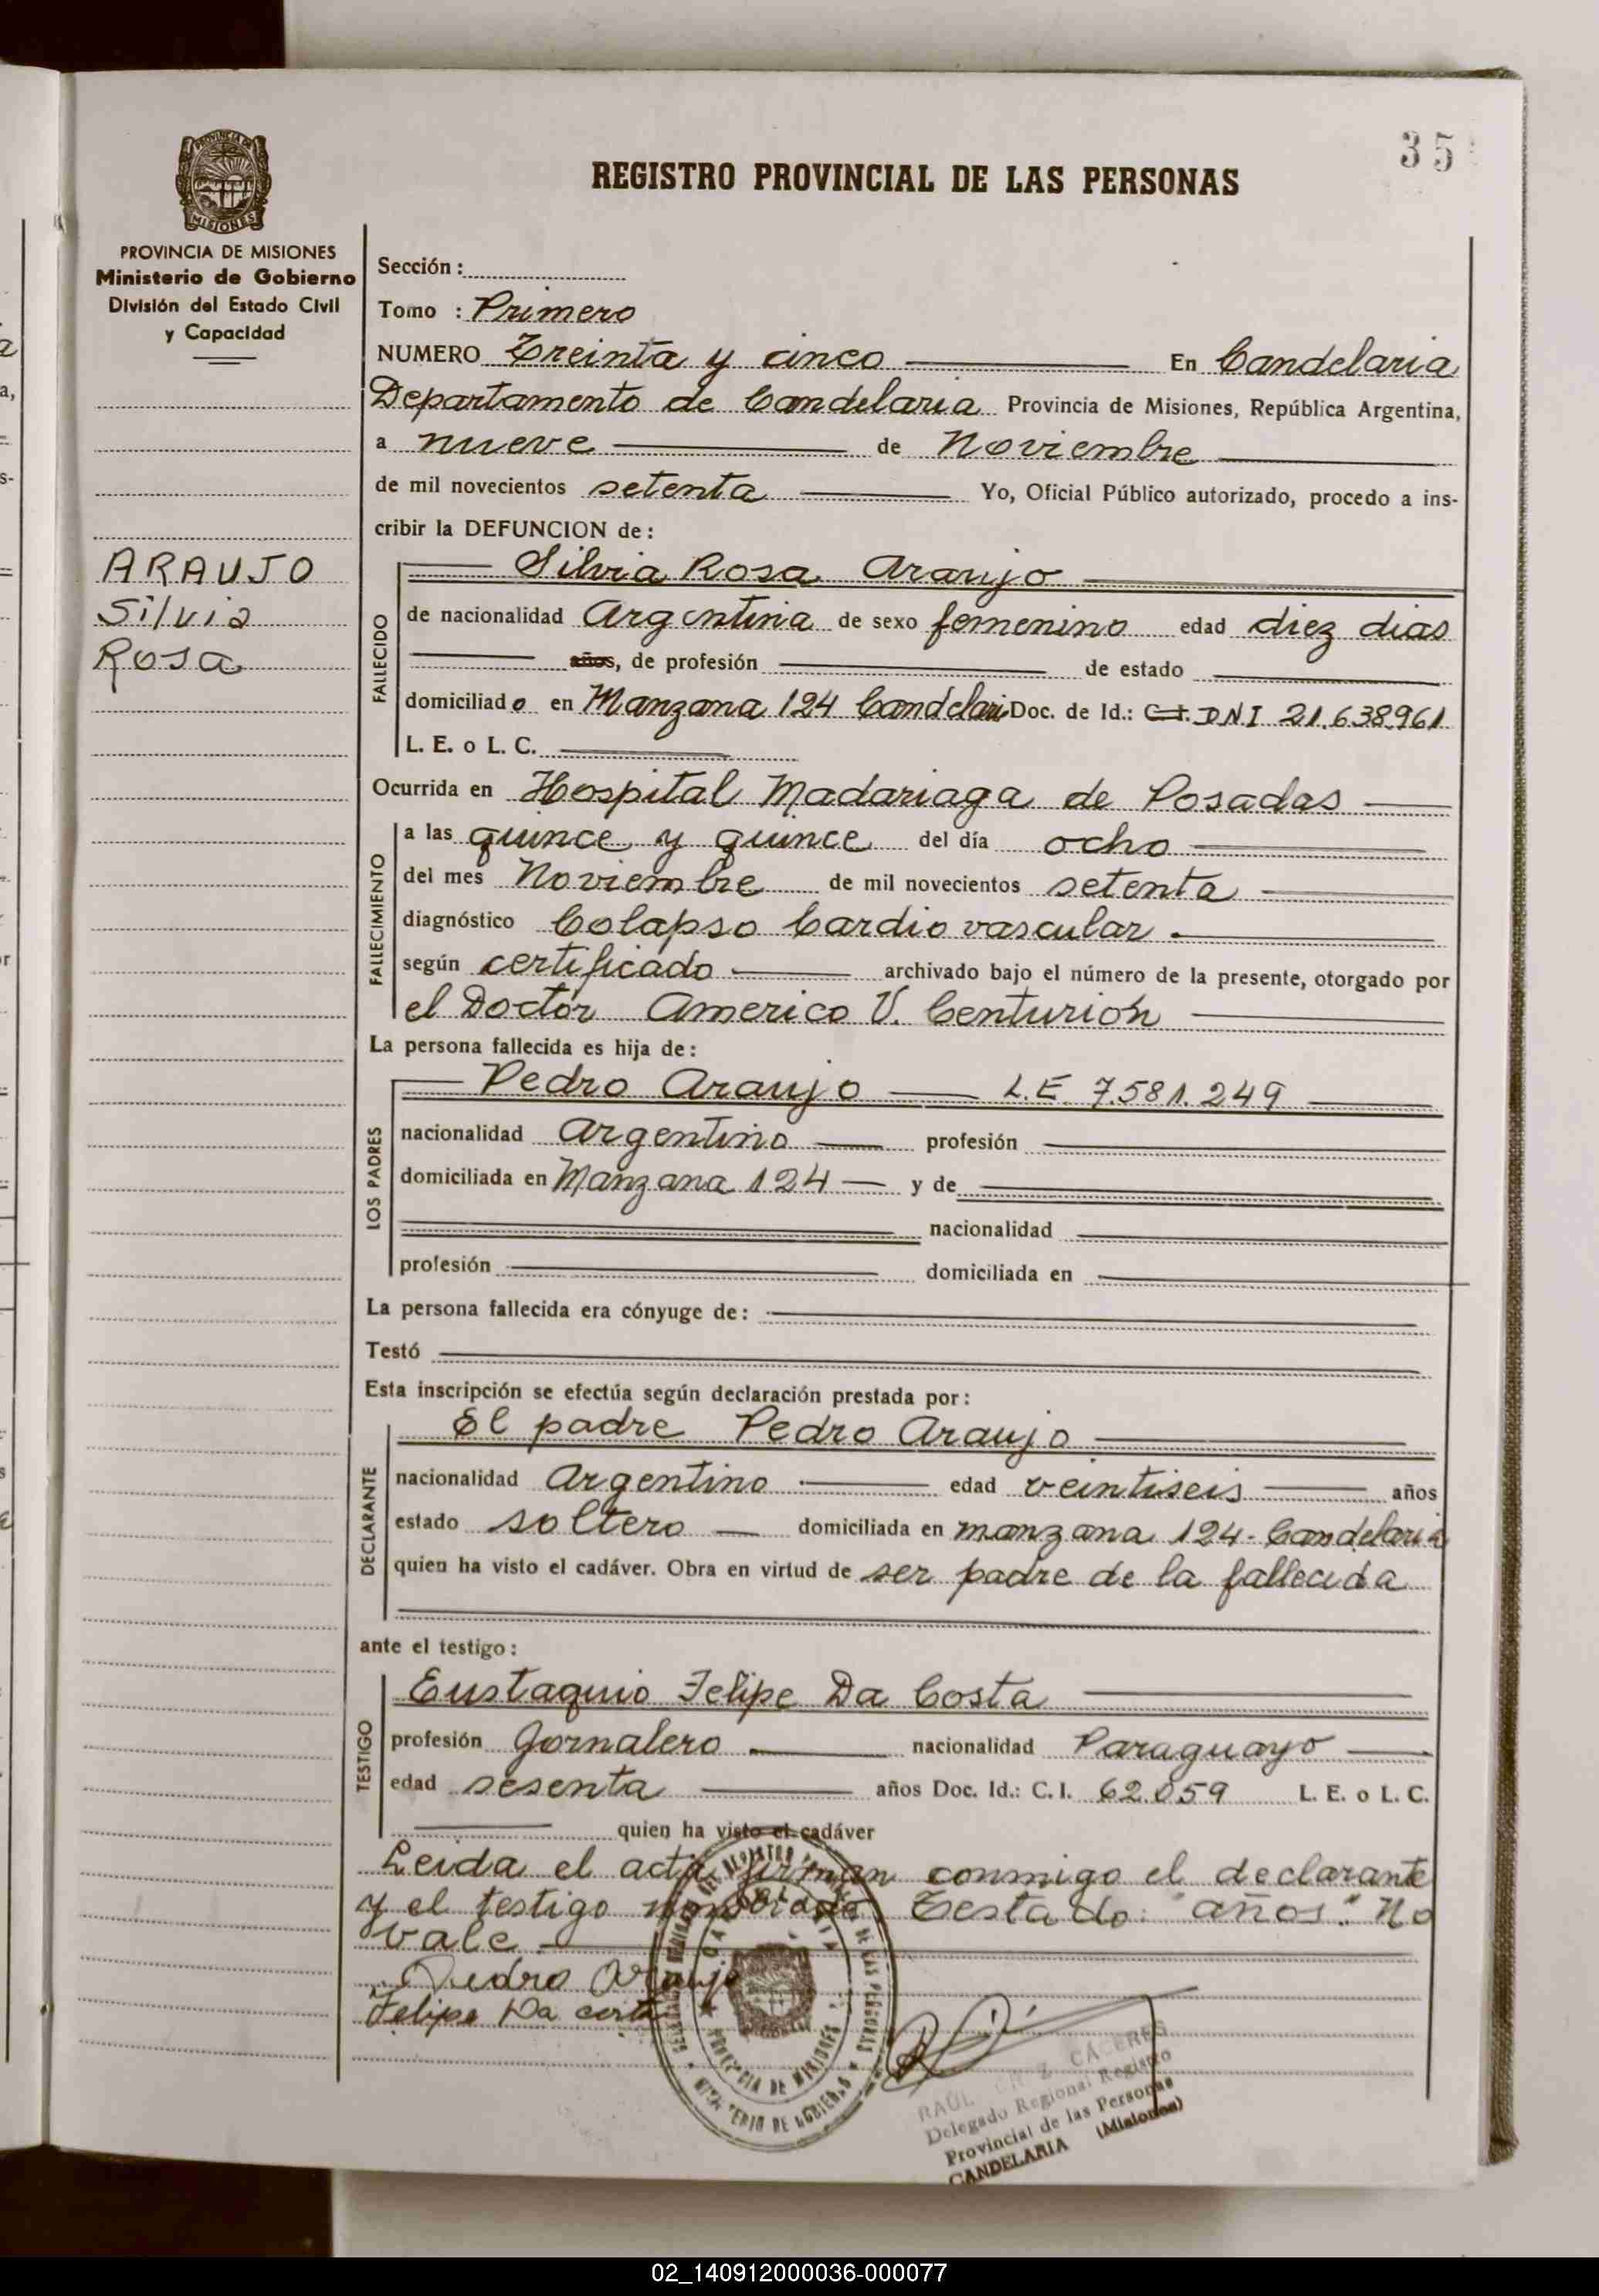 35
REGISTRO PROVINCIAL DE LAS PERSONAS
PROVINCIA DE MISIONES
Ministerio de Gobierno
División del Estado Civil
y Capacidad
ARAUJO
Silvia
Rosa
Sección :
Tomo : Primero
NUMERO Treinta y cinco En Candelaria
Departamento de Candelaria Provincia de Misiones, República Argentina,
a nueve de Noviembre
de mil novecientos setenta Yo, Oficial Público autorizado, procedo a ins-
cribir la DEFUNCION de :
FALLECIDO
Silvia Rosa Araujo
de nacionalidad Argentina de sexo femenino edad diez dias
años, de profesión de estado
domiciliado en Manzana 124 Candelari Doc. de Id.: C.I. DNI 21.638.961
L. E. o L. C.
Ocurrida en Hospital Madariaga de Posadas
FALLECIMIENTO
a las quince y quince del día ocho
del mes Noviembre de mil novecientos setenta
diagnóstico Colapso Cardio vascular.
según certificado archivado bajo el número de la presente, otorgado por
el Doctor Americo V. Centurión
La persona fallecida es hija de :
LOS PADRES
Pedro Araujo L.E. 7.581.249
nacionalidad Argentino profesión
domiciliada en Manzana 124 y de
nacionalidad
profesión domiciliada en
La persona fallecida era cónyuge de :
Testó
Esta inscripción se efectúa según declaración prestada por :
DECLARANTE
El padre Pedro Araujo
nacionalidad Argentino edad veintiseis años
estado soltero domiciliada en manzana 124 - Candelaria
quien ha visto el cadáver. Obra en virtud de ser padre de la fallecida
ante el testigo :
TESTIGO
Eustaquio Felipe Da Costa
profesión Jornalero nacionalidad Paraguayo
edad sesenta años Doc. Id.: C. I. 62.059 L. E. o L. C.
quien ha visto el cadáver
Leida el acta firman conmigo el declarante
y el testigo nombrado Testado: "años": No
vale
Pedro Araujo
Felipe Da costa
PROVINCIA DE MISIONES
DE LAS PERSONAS
RAÚL CACERES
Delegado Regional Registro
Provincial de las Personas
CANDELARIA (Misiones)
02_140912000036-000077